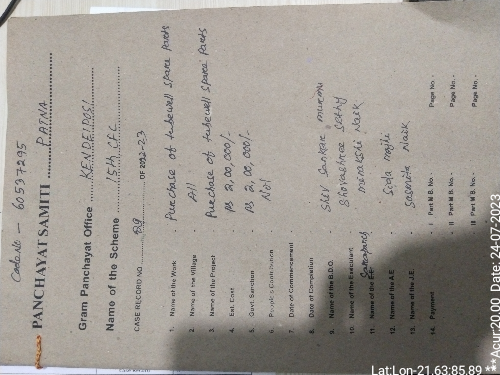 Code No - 60597295
PANCHAYAT SAMITI PATNA
Gram Panchayat Office KENDEIPOSI
Name of the Scheme 15th CFC
CASE RECORD NO. 29 OF 2022-23
1. Name of the Work - Purchase of tubewell spare parts
2. Name of the Village - All
3. Name of the Project - Purchase of tubewell spare parts
4. Est. Cost - Rs 2,00,000/-
5. Govt. Sanction - Rs 2,00,000/-
6. People's Contribution - Nil
7. Date of Commencement
8. Date of Completion
9. Name of the B.D.O. Shiv Sankar murmu
10. Name of the Executant Bhavashree Sethy
11. Name of the Sarpanch minakshi Naik
12. Name of the A.E Sida majhi
13. Name of the J.E. Sasmita Naik
14. Payment I Part M.B. No. - Page No. -
II Part M.B. No. - Page No. -
III M.B. No. - Page No. -
Lat:Lon-21.63:85.89 **Acur:20.00, Date: 24-07-2023